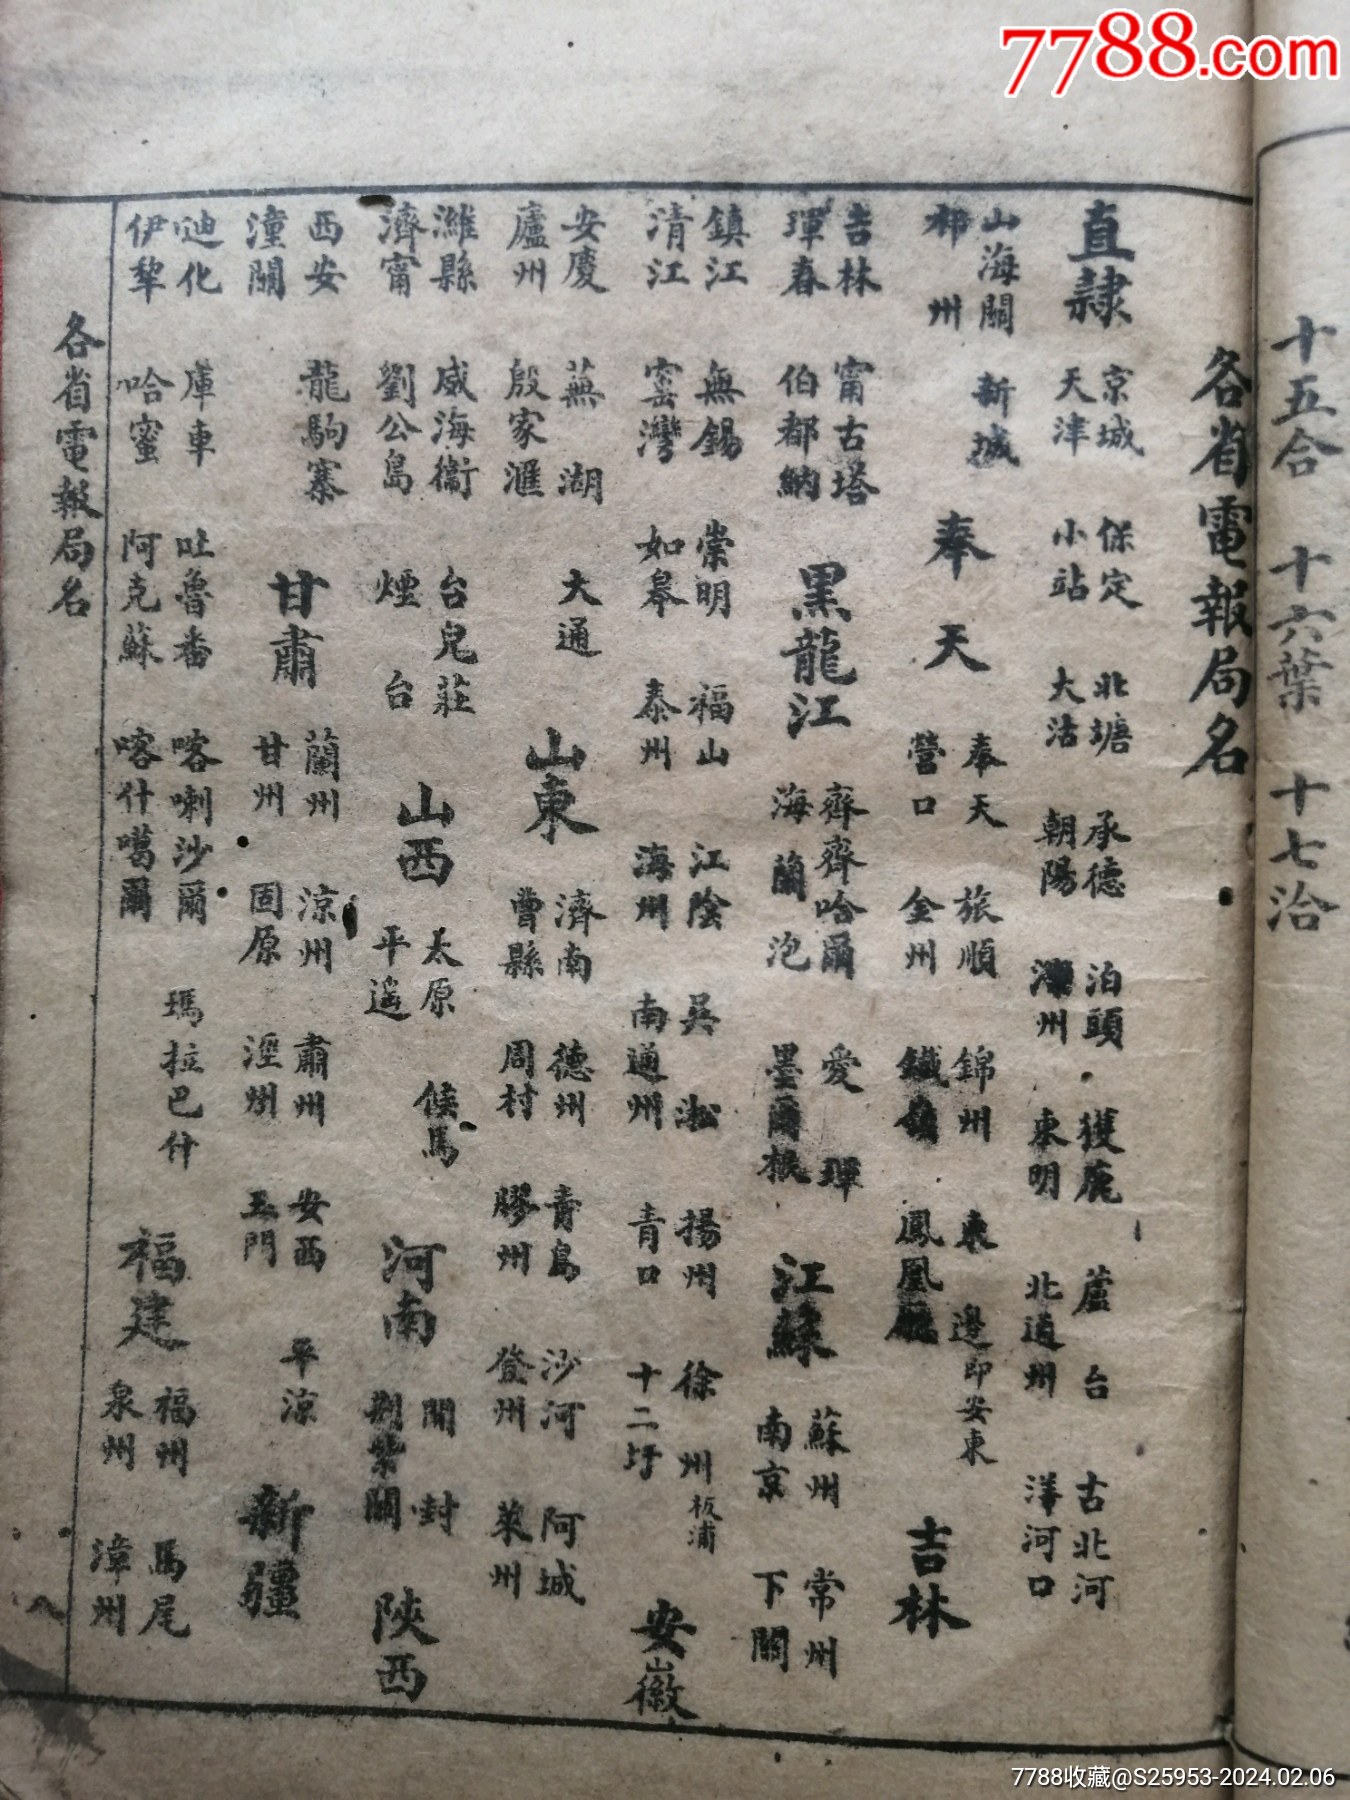 十五合 十六葉 十七洽
各省電報局名
直隸
京城 保定 北塘 承德 泊頭 獲鹿 蘆台 古北河
天津 小站 大沽 朝陽 灤州 東明 北通州 洋河口
山海關 新城
祁州
奉天
奉天 旅順 錦州 東邊即安東
營口 金州 鐵嶺 鳳凰廳
吉林
吉林 甯古塔
琿春 伯都納
黑龍江
齊齊哈爾 愛琿
海蘭泡 墨爾根
江蘇
蘇州 常州
南京 下關
鎮江 無錫 崇明 福山 江陰 吳淞 揚州 徐州板浦
清江 窰灣 如皋 泰州 海州 南通州 青口 十二圩
安徽
安慶 蕪湖 大通
廬州 殷家滙
山東
濟南 德州 青島 沙河 阿城
曹縣 周村 膠州 登州 萊州
濰縣 威海衛 台兒莊
濟甯 劉公島 煙台
山西
太原 候馬
平遙
河南
開封
荊紫關
陝西
西安 龍駒寨
潼關
甘肅
蘭州 涼州 肅州 安西 平涼
甘州 固原 涇州 玉門
新疆
迪化 庫車 吐魯番 喀喇沙爾 瑪拉巴什
伊犂 哈蜜 阿克蘇 喀什噶爾
福建
福州 馬尾
泉州 漳州
各省電報局名
7788.com
7788收藏@S25953-2024.02.06